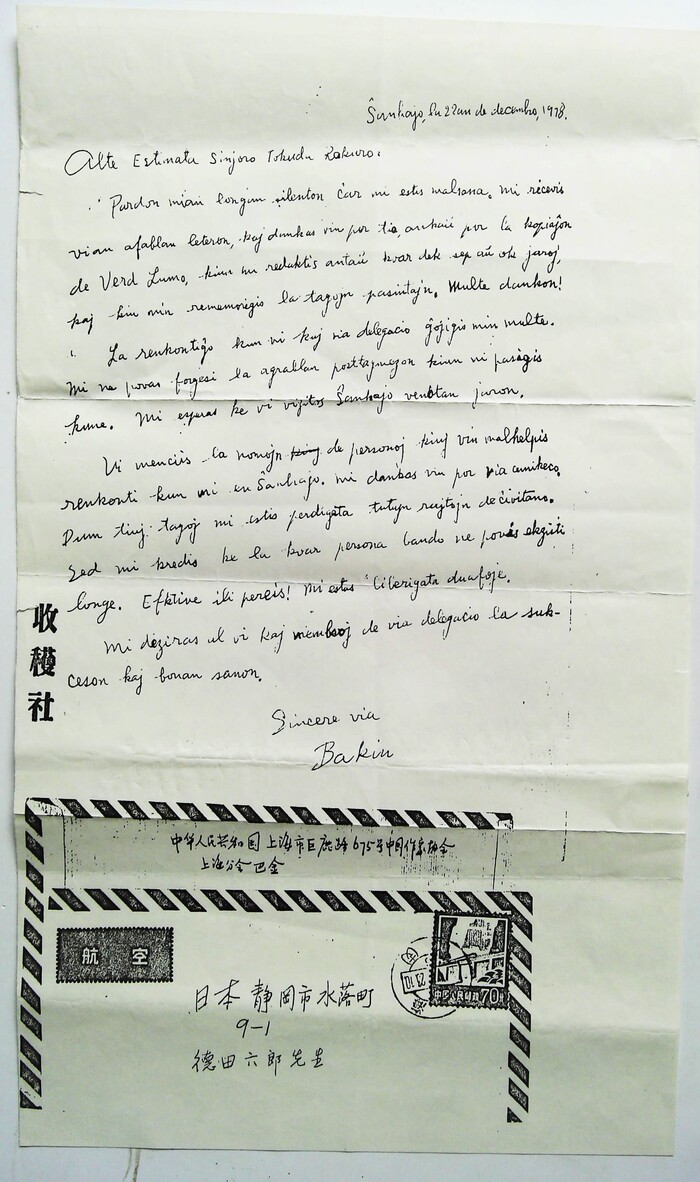 Ŝanhajo, la 22an de decembro, 1978.
Alte Estimata Sinjoro Tokuda Rokuro:
Pardon mian longan silenton ĉar mi estis malsana. Mi ricevis
vian afablan leteron, kaj dankas vin por tio, ankaŭ por la kopiaĵon
de Verd Lumo, kiun mi redaktis antaŭ kvar dek sep aŭ ok jaroj,
kaj kiu min rememorigis la tagojn pasintajn. Multe dankon!
La renkontiĝo kun vi kaj via delegacio ĝojigis min multe.
Mi ne povas forgesi la agrablan posttagmezon kiun ni pasigis
kune. Mi esperas ke vi vizitos Ŝanhajo venontan jaron.
Vi menciis la nomojn de personoj kiuj vin malhelpis
renkonti kun mi en Ŝanhajo. Mi dankas vin por via amikeco.
Dum tiuj tagoj mi estis perdigata tutajn rajtojn de civitano.
Sed mi kredis ke la kvar persona bando ne povas ekzisti
longe. Efktive ili pereis! Mi estas liberigata duafoje.
Mi deziras al vi kaj membroj de via delegacio la suk-
ceson kaj bonan sanon.
Sincere via
Bakin
收穫社
中华人民共和国上海市巨鹿路675号中国作家协会
上海分会 巴金
航空
中国人民邮政 70
日本 静岡市水落町
9-1
德田六郎先生